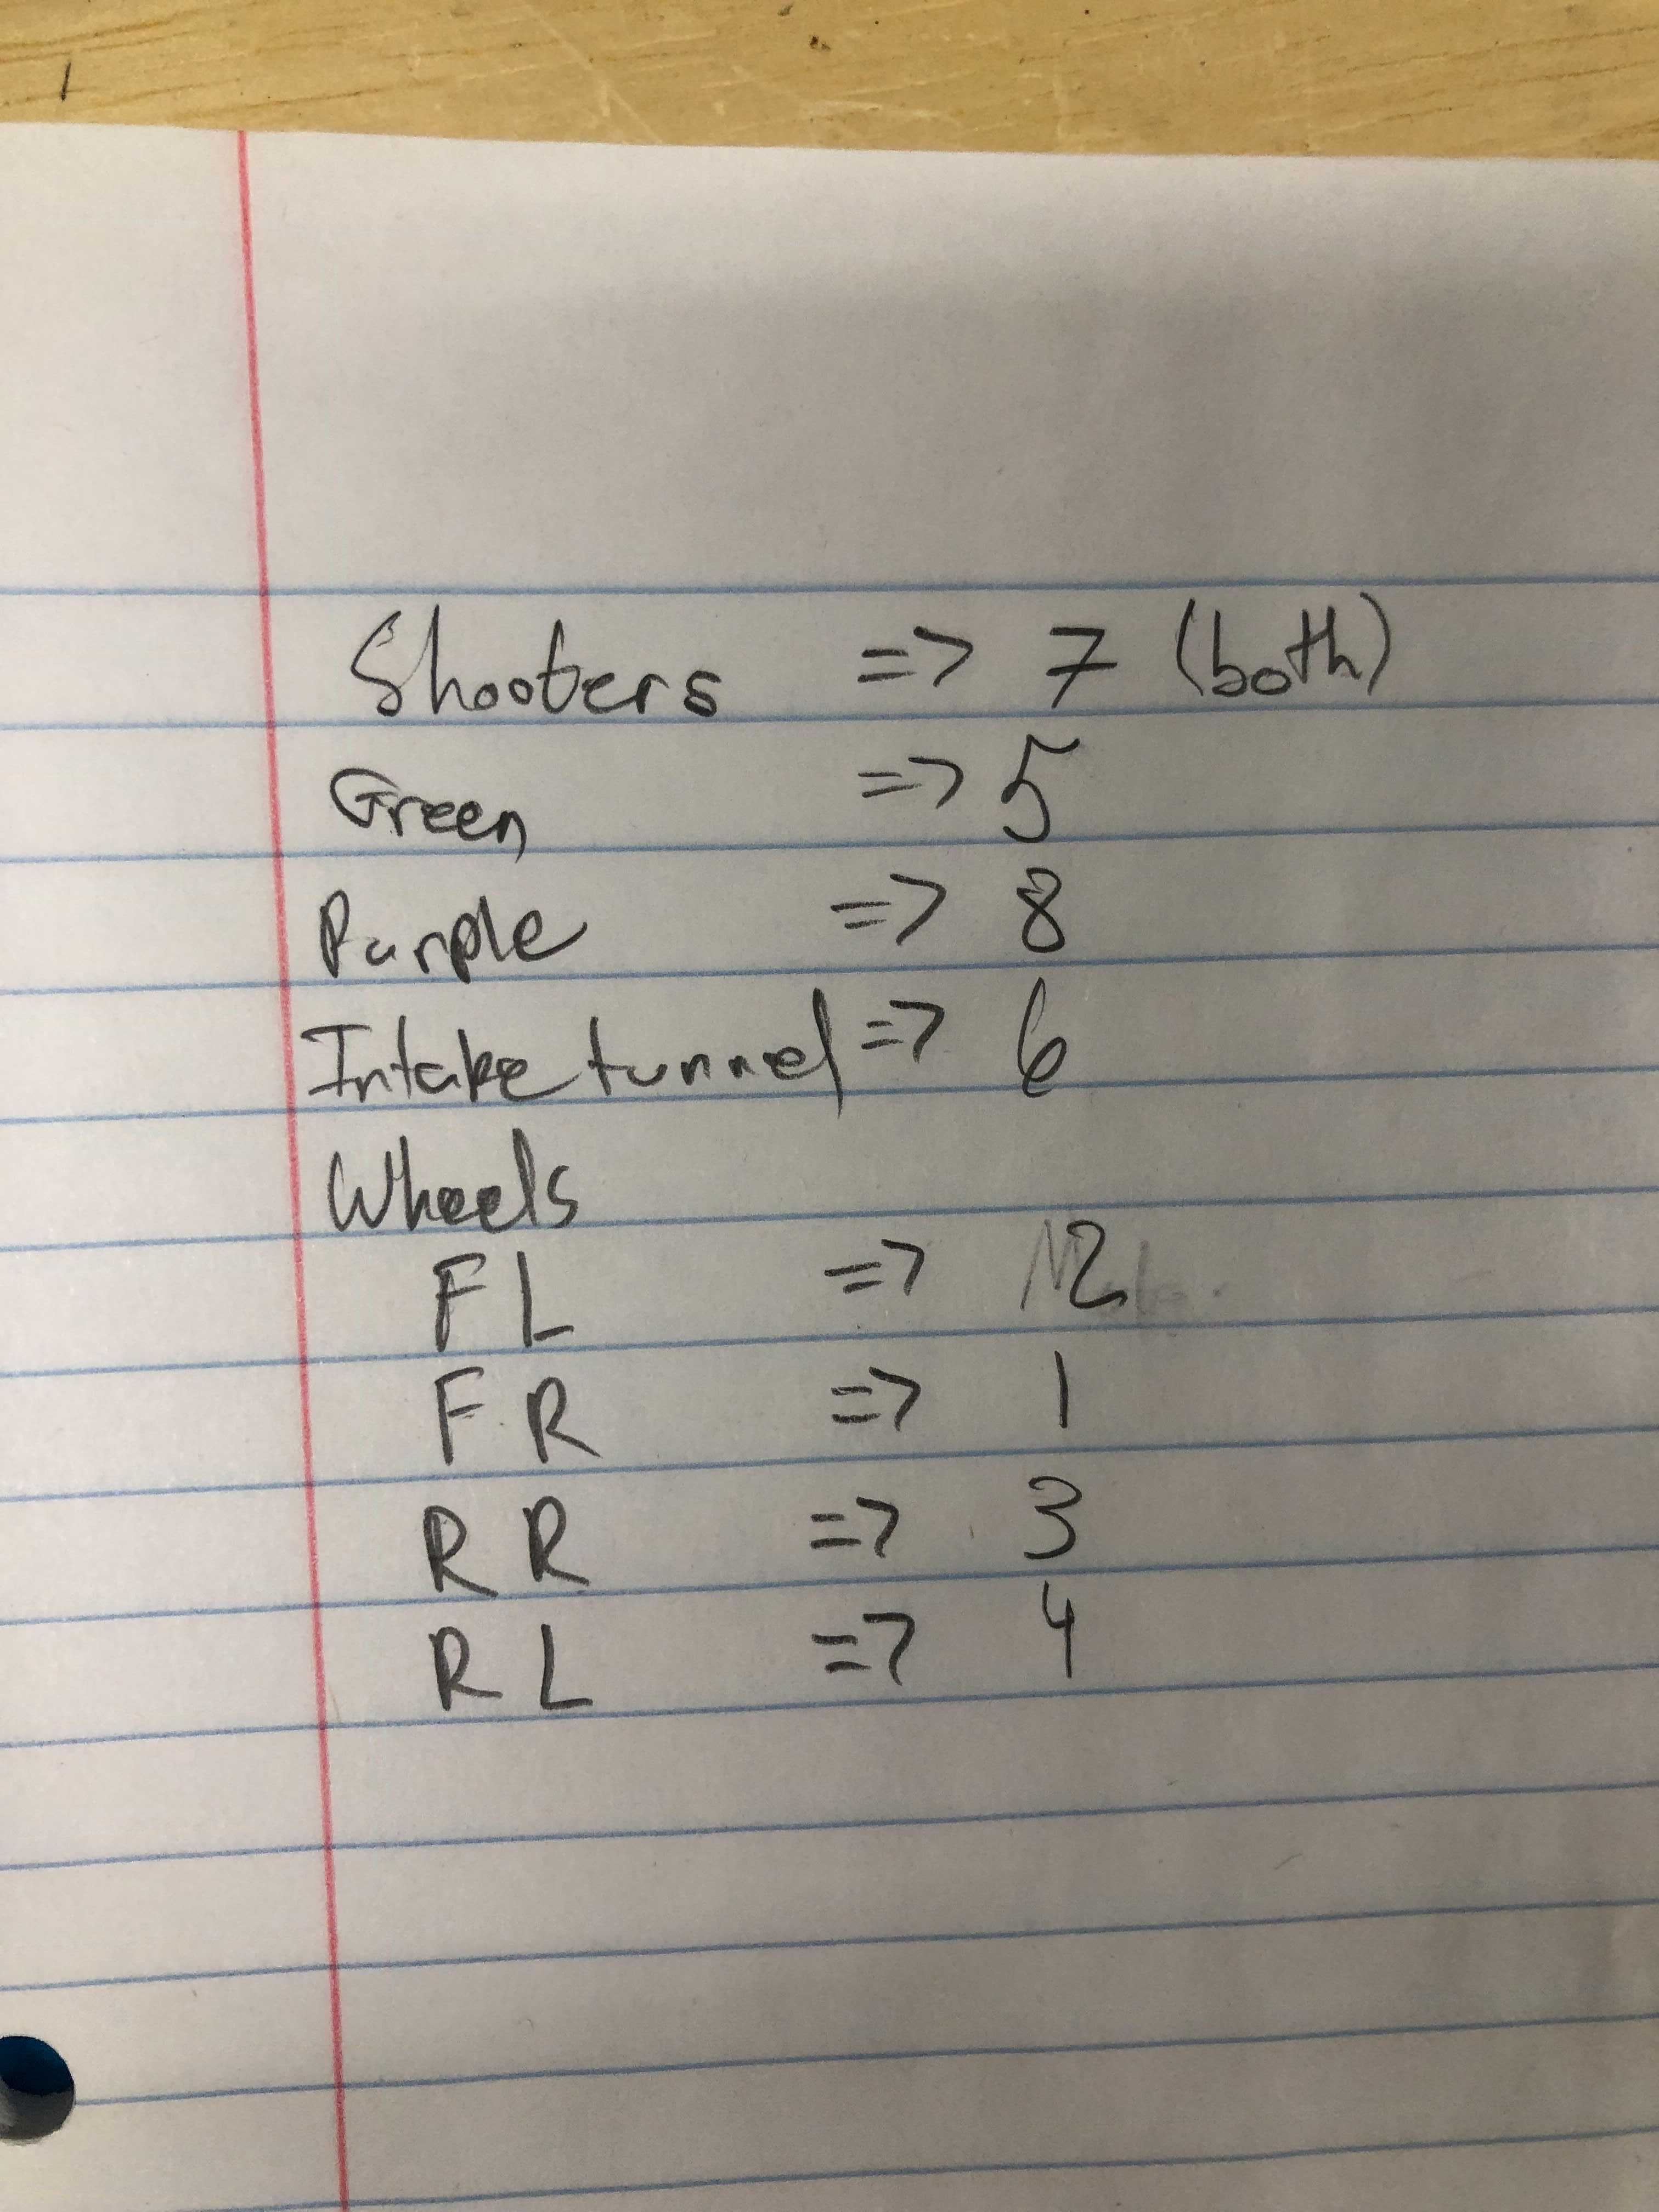 Shooters => 7 (both)
Green => 5
Purple => 8
Intake tunnel => 6
Wheels
FL => 2
FR => 1
RR => 3
RL => 4